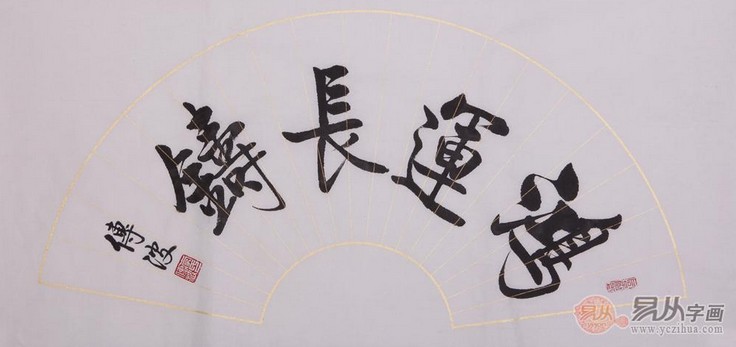 運長鑄
傅波
易从字画
www.yczihua.com